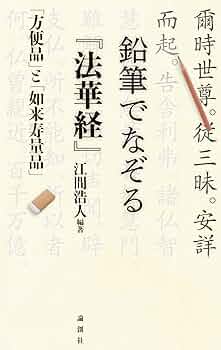 爾時世尊。従三昧。安詳
而起。告舎利弗諸仏智
鉛筆でなぞる
『法華経』
江間浩人 編著
「方便品」と「如来寿量品」
論創社